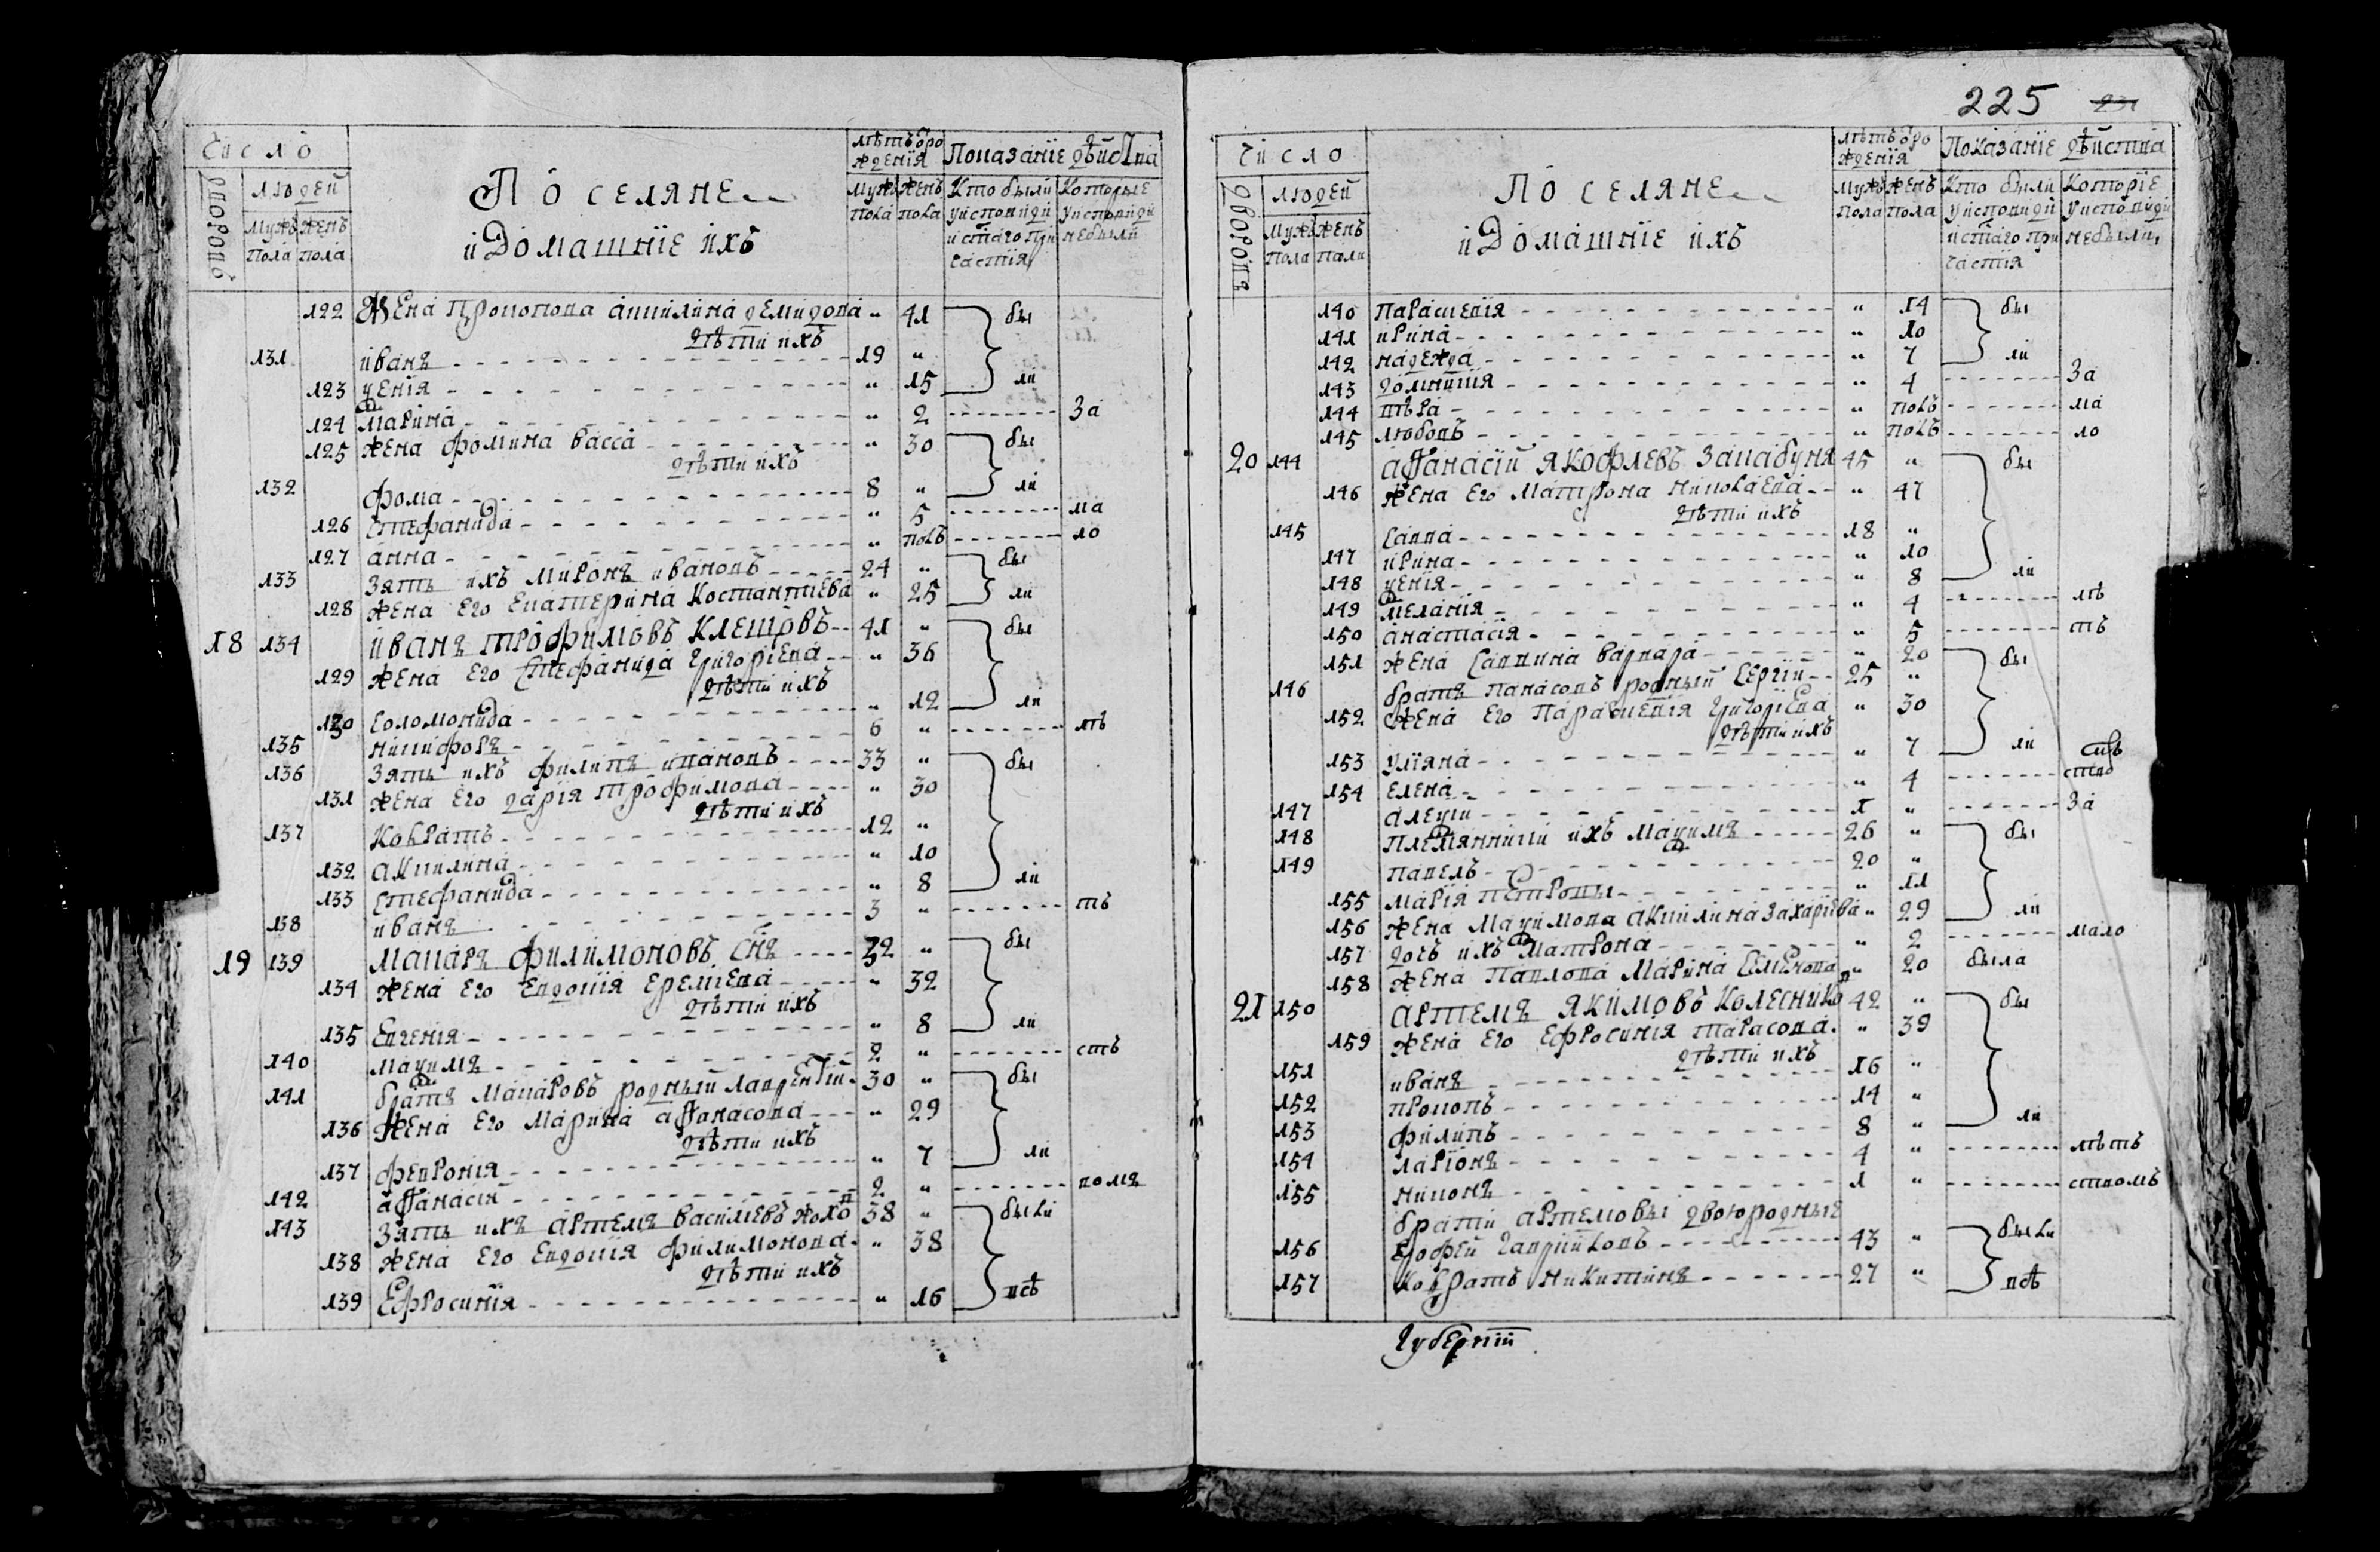 Число
Поселяне
и Домашние ихъ
лѣтъ ѿ рождения
Показание дѣйства
дворовъ
людей
мужъ пола
женъ пола
мужъ пола
женъ пола
Кто были у исповиди и с[вя]таго причастия
Которые у исповиди небыли
122 Жена Прокопова Акилина Демидова " 41 бы
дѣти ихъ
131 Иванъ 19 "
123 Ѯения " 15 ли
124 Марина " 2 За
125 жена Фомина васса " 30 бы
дѣти ихъ
132 Фома 8 " ли
126 Стефанида " 5 ма
127 анна " полъ ло
133 Зять ихъ Миронъ Ивановъ 24 " бы
128 жена Его Екатерина Костантиева " 25 ли
18 134 Иванъ Трофимовъ Клешовъ 41 " бы
129 жена Его Стефанида Григориева " 36
дѣти ихъ
130 Соломонида " 12 ли
135 Никифоръ 6 " лѣ
136 Зять ихъ Филипъ Ивановъ 33 " бы
131 жена Его Дария Трофимова " 30
дѣти ихъ
137 Кократъ 12 "
132 Акилина " 10
133 Стефанида " 8 ли
138 Иванъ 3 " тъ
19 139 Макаръ Филимоновъ Снъ 32 " бы
134 жена Его Евдокия Еремиева " 32
дѣти ихъ
135 Евгения " 8 ли
140 Маѯимъ 2 " стъ
141 братъ Макаровъ родный лаврентий 30 " бы
136 жена Его Марина Афанасова " 29
дѣти ихъ
137 Феврония " 7 ли
142 Афанасий 2 " вомъ
143 Зять ихъ Артемъ Василиевъ Жохов 38 " были
138 жена Его Евдокия Филимонова " 38
дѣти ихъ
139 Ефросиния " 16 всѣ
225
Число
Поселяне
и Домашние ихъ
лѣтъ ѿ рождения
Показание дѣйства
дворовъ
людей
мужъ пола
женъ пола
мужъ пола
женъ пола
Кто были у исповиди и с[вя]таго причастия
Которие у исповиди небыли
140 Параскевия " 14 бы
141 Ирина " 10
142 надежда " 7 ли
143 домникия " 4 За
144 вѣра " полъ ма
145 любовь " полъ ло
20 144 Афанасий Якофлевъ Запабуня 45 " бы
146 жена Его Матрона Николаева " 47
дѣти ихъ
145 Савва 18 "
147 Ирина " 10
148 Ѯения " 8 ли
149 мелания " 4 лѣ
150 анастасия " 5 тъ
151 жена Саввина варвара " 20 бы
146 братъ панасовъ родный Сергий 25 "
152 жена Его Параскевия Григориева " 30
дѣти ихъ
153 улияна " 7 ли
154 Елена " 4 ство
147 алеѯий 1 " За
148 племянники ихъ Маѯимъ 26 " бы
149 павелъ 20 "
155 Мария петровы " 11
156 жена Маѯимова Акилина Захариева " 29 ли
157 дочь ихъ матрона " 2 мало
158 жена Павлова Марина Семенова " 20 была
21 150 Артемъ Якимовъ Колеснико 42 " бы
159 жена Его Ефросиния Тарасова " 39
дѣти ихъ
151 Иванъ 16 "
152 прокопъ 14 "
153 филипъ 8 " ли
154 ларионъ 4 " лѣтъ
155 никонъ 1 " ствомъ
брати артемовы двоюродные
156 Ерофей Гавриилов 43 " были
157 Кократъ Никитинъ 27 " всѣ
Губерний